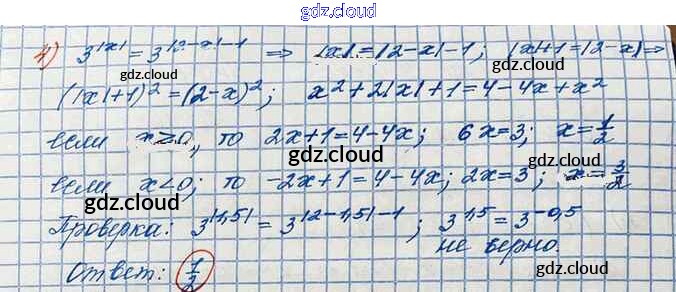 gdz.cloud
4) 3^|x| = 3^|2-x|-1 ⇒ |x| = |2-x| - 1; |x|+1 = |2-x| ⇒
gdz.cloud gdz.cloud
(|x|+1)² = (2-x)²; x² + 2|x| + 1 = 4 - 4x + x²
gdz.cloud
если x ≥ 0, то 2x+1 = 4-4x; 6x = 3; x = 1/2
gdz.cloud
если x < 0; то -2x+1 = 4-4x; 2x = 3; x = 3/2
gdz.cloud gdz.cloud
Проверка: 3^|1,5| = 3^|2-1,5|-1; 3^1,5 = 3^-0,5
не верно.
Ответ: 1/2
gdz.cloud gdz.cloud